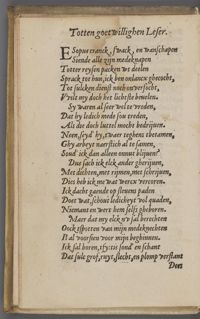 Totten goetwillighen Leser.
ESopus cranck, swack, en wanschapen
Siende alle zijn medeknapen
Totter reysen packen we deelen
Sprack tot hun, ick ben onlancx ghecocht,
Tot sulcken dienst noch onversocht,
Wilt my doch het lichtste bevelen.
Sy waren al seer wel te vreden,
Dat hy ledich mede sou treden,
Als die doch luttel mocht bedrijven.
Neen, seyd' hy, t'waer teghens t'betamen,
Ghy arbeyt neerstich al te samen,
Soud' ick dan alleen onnut blijven?
Dus sach ick elck ander gherijven,
Met dichten, met rijmen, met schrijven,
Dies heb ick me wat wercx vercoren.
Ick dacht gaende op sleuens paden
Doet wat, schout ledicheyt vol quaden,
Niemant en wert hem selfs gheboren.
Maer dat my elck nu sal berechten
Oock spotten van mijn medeknechten
Is al voorsien voor mijn beghinnen.
Ick sal horen, t'is cies sond' en schant
Dat sulc grof, ruyt, slecht, en plomp verstant
Doet